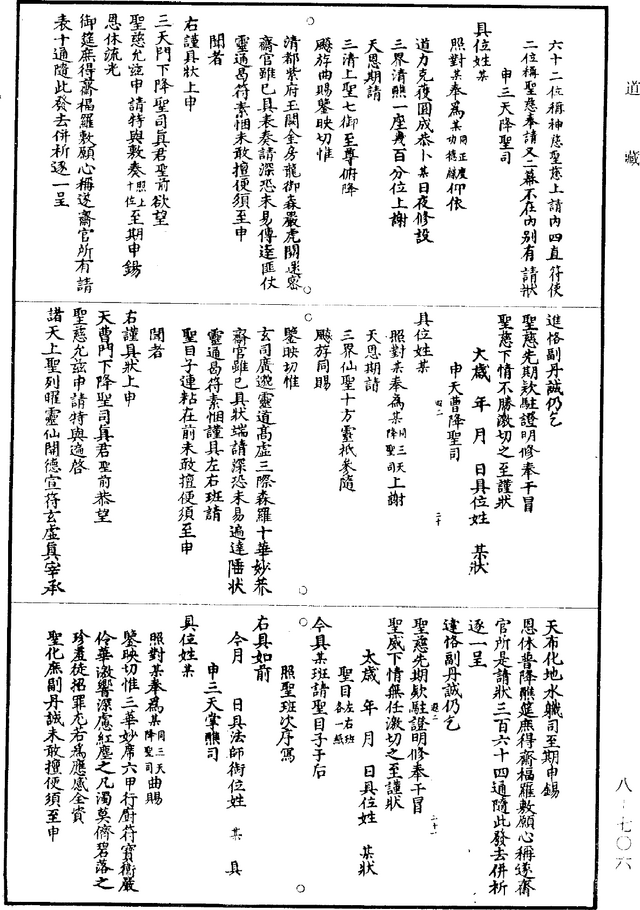 道藏
六十二位稱神慈聖慈上請內四直符使
二位稱聖慈奉請又二幕不在內別有請狀
申三天降聖司
具位姓某
照對某奉爲某同正度功德疏仰依
道力克復圓成恭卜某日夜修設
三界清醮一座幾百分位上謝
天恩期請
三清上聖七御至尊俯降
飈斿曲賜鑒映切惟
清都紫府玉闕金房龍御森嚴虎關邃密
齋官雖已具表奏請深恐未易傳達匪仗
靈通曷符素悃未敢擅便須至申
聞者
右謹具狀上申
三天門下降聖司眞君聖前欲望
聖慈允茲申請特與敷奏照上十位至期申錫
恩休流光
御筵庶得齋福羅敷願心稱遂齋官所有請
表十通隨此發去併析逐一呈
進恪副丹誠仍乞
聖慈先期欵駐證明修奉干冒
聖慈下情不勝激切之至謹狀
太歲年月日具位姓某狀
申天曹降聖司
四二
二十
具位姓某
照對某奉爲某同三天降聖司上謝
天恩期請
三界仙聖十方靈祇參隨
飈斿同賜
鑒映切惟
玄司廣邈靈道高虛三際森羅十華妙莽
齋官雖已具狀端請深恐未易遍達陲狀
靈通曷符素悃謹具左右班請
聖目子連粘在前未敢擅便須至申
聞者
右謹具狀上申
天曹門下降聖司眞君聖前恭望
聖慈允茲申請特與遍啓
諸天上聖列曜靈仙開德宣符玄虛眞宰承
天布化地水職司至期申錫
恩休普降醮筵庶得齋福羅敷願心稱遂齋
官所是請狀三百六十四通隨此發去併析
逐一呈
達恪副丹誠仍乞
聖慈先期欵駐證明修奉干冒
聖威下情無任激切之至謹狀
太歲年月日具位姓某狀
聖目左右班各一紙
今具某班請聖目子于后
照聖班次序寫
右具如前
今月日具法師銜位姓某具
申三天掌醮司
具位姓某
照對某奉爲某同三天降聖司曲賜
鑒映切惟三華妙席六甲行廚符寶衞嚴
伶華激響深慮紅塵之凡濁莫儕碧落之
珍羞徒招罪尤右爲應感全資
聖化庶副丹誠未敢擅便須至申
八·七〇六